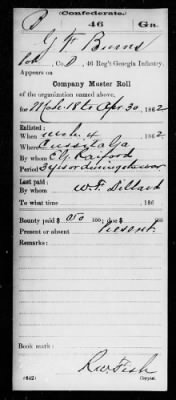 Confederate.
46 Ga.
J F Burns
Co. D, 46 Reg't Georgia Infantry.
Appears on
Company Muster Roll
of the organization named above,
for Mch 18 to Apr 30, 1862
Enlisted:
When Mch 4 1862
Where Ga
By whom Raiford
Period 3 yrs or during the war
Last paid:
By whom W.F. Dillard
To what time 186
Bounty paid $50 100; due $ 100
Present or absent Present
Remarks:
Book mark:
R W Fish
(642) Copyist.